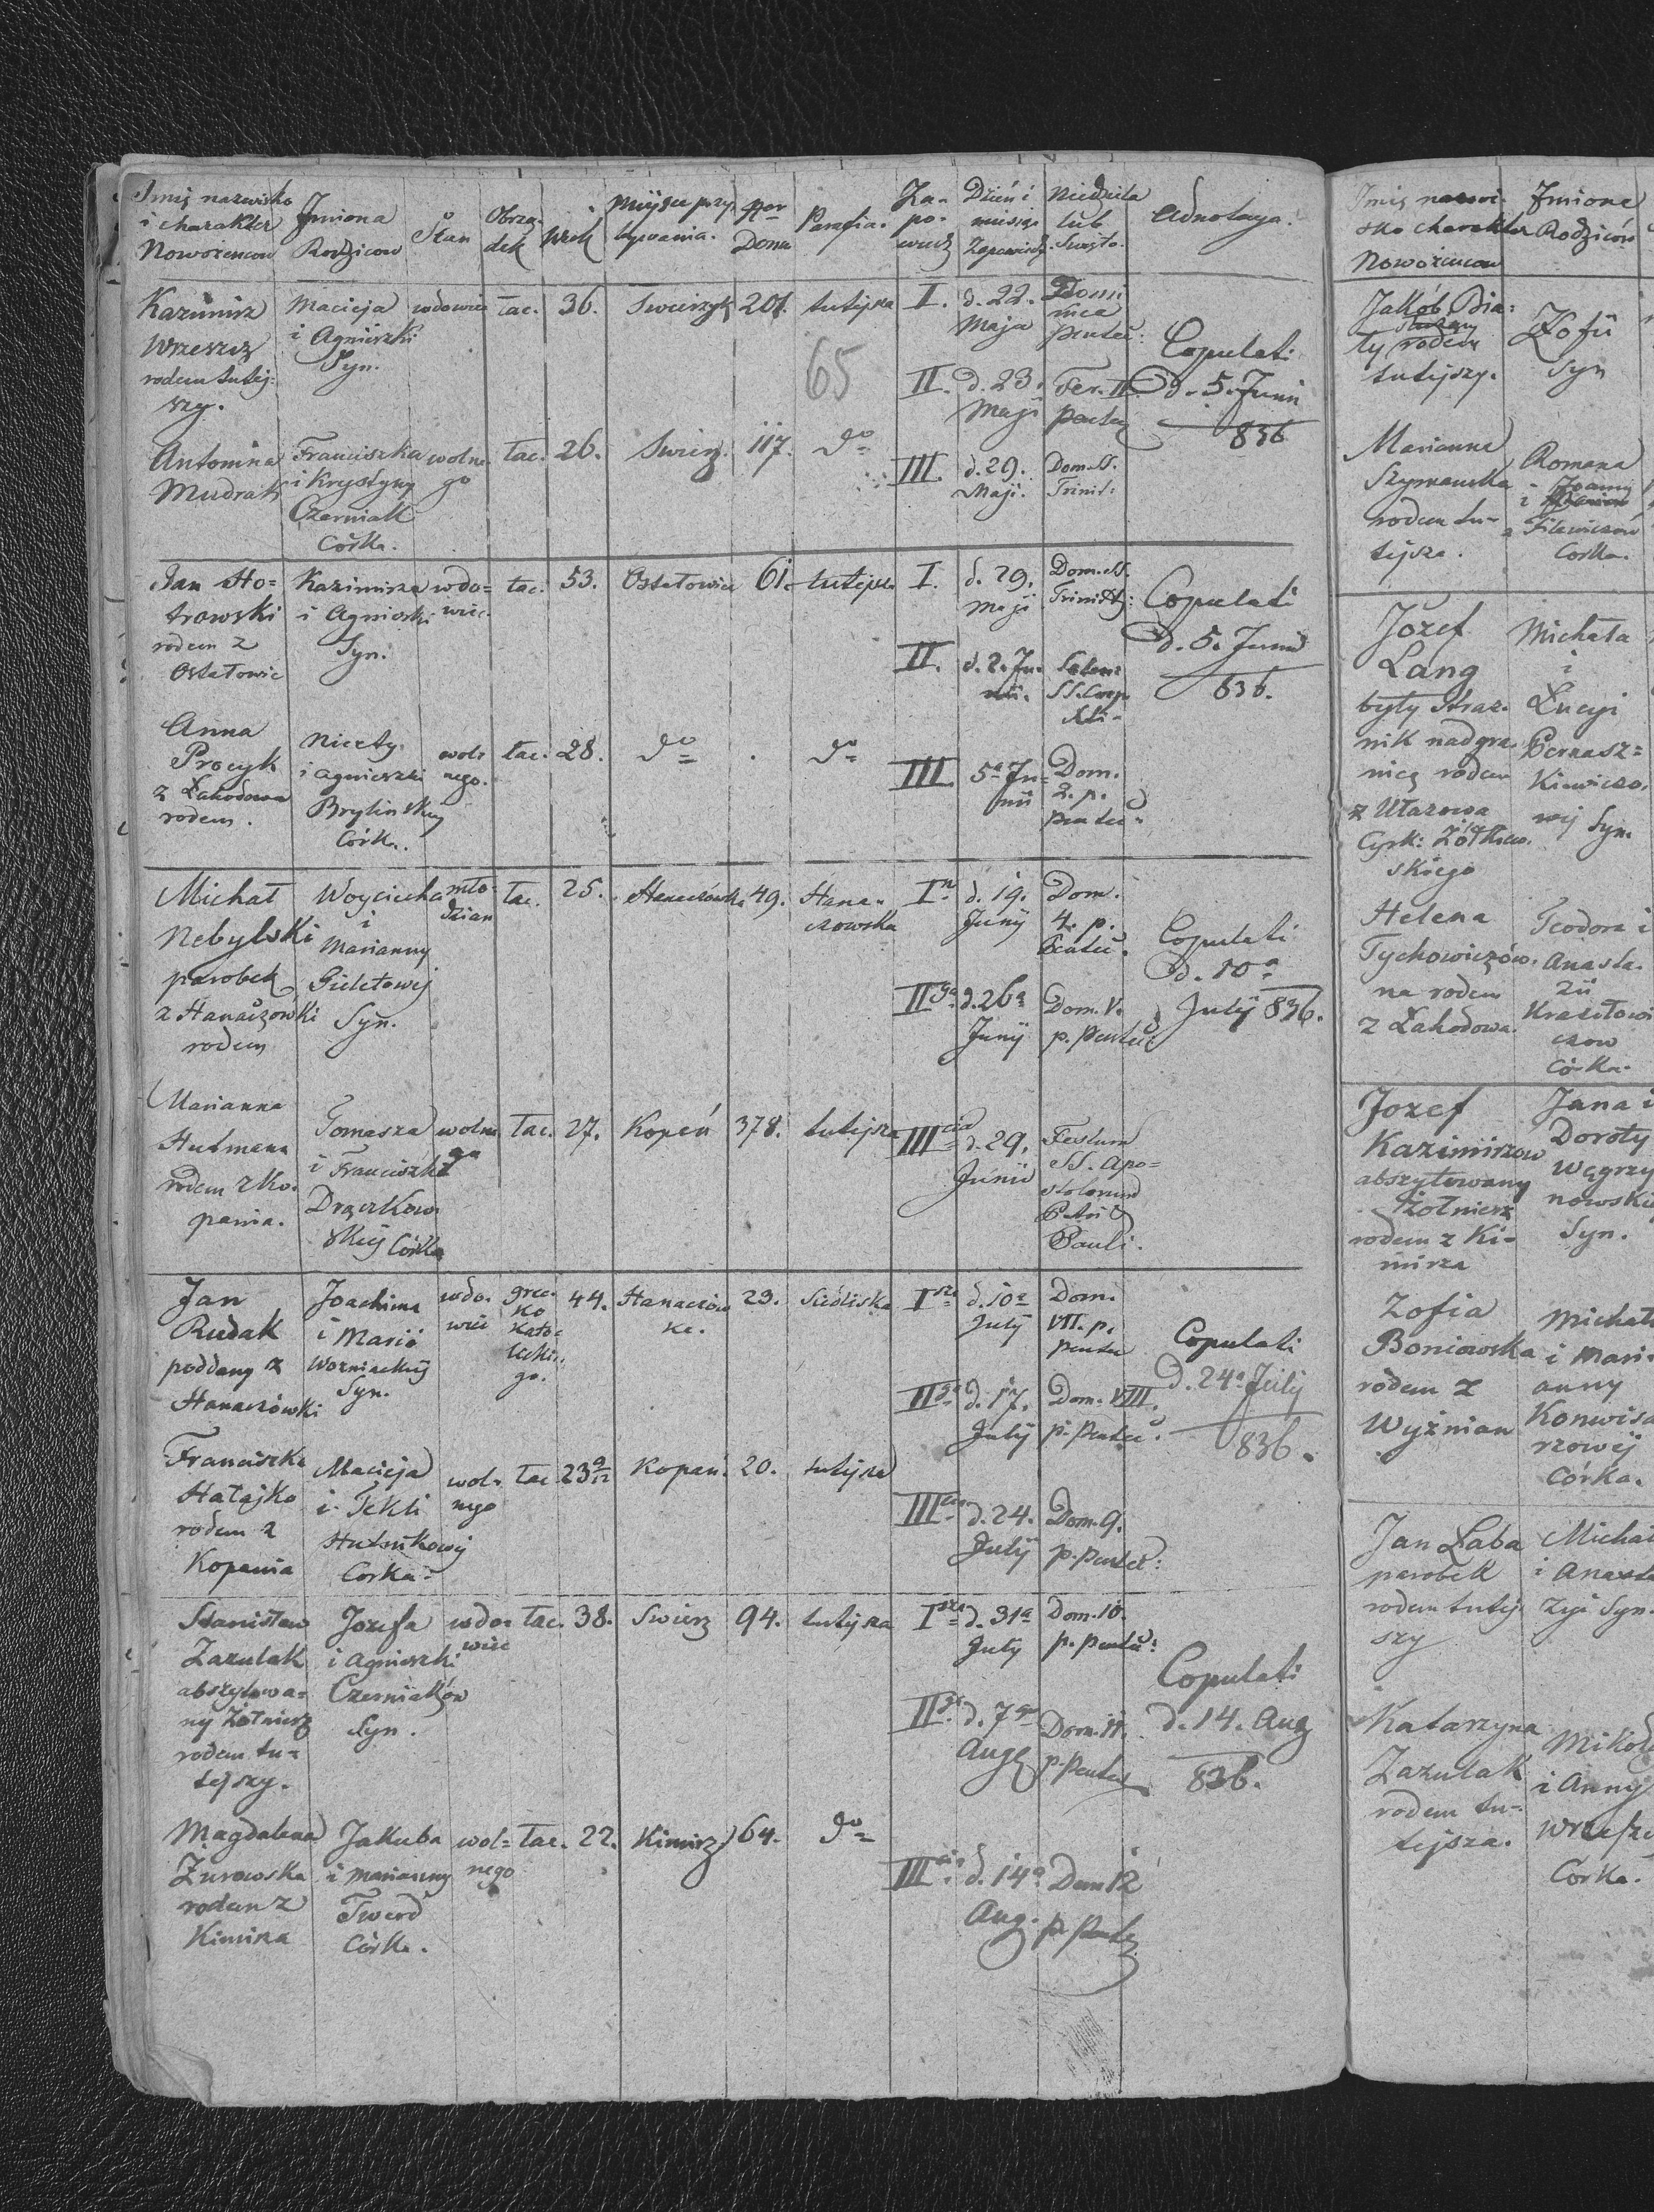 Imię nazwisko i charakter Nowożencow | Jmiona Rodzicow | Stan | Obrzą-dek | Wiek | Miejsce przy-bywania. | Nror Domu | Parafia. | Za-po-wiedz | Dzień i miesiąc Zapowiedz. | Niedziela lub Swięto. | Adnotacya.
Kazimirz
Wrzeszcz
rodem tutej-
szy.
Macieja
i Agnieszki
Syn.
wdowiec
łac.
36.
Swirzyk
201.
tutejsza
I.
d. 22.
Maja
Domi
nica
pentec:
65
II.
d. 23.
Maji
Fer. II
pentec
Copulati
d. 5. Junii
836
Antonina
Mudrak
Franciszka
i Krystyny
Czerniak
Córka.
wolne
go
łac.
26.
Swirz.
117.
do
III.
d. 29.
Maji.
Dom. SS.
Trinit:
Jan Ho=
trowski
rodem z
Ostałowic
Kazimirza
i Agnieszki
Syn.
wdo=
wiec.
łac.
53.
Ostałowice
61.
tutejsza
I.
d. 29.
Maji
Dom. SS.
Trinit:
Copulati
d. 5. Junii
836.
II.
d. 2. Ju-
nii.
SS. Corp.
Xti-
Anna
Procyk
z Łahodowa
rodem.
Nicety
i Agnieszki
Brylinskiej
Córka.
wol=
nego.
łac.
28.
do
.
do
III
5a Ju=
nii
Dom.
2. p.
pentec:
Michał
Nebylski
parobek
z Hanaczówki
rodem
Woyciecha
i
Marianny
Gieletowej
Syn.
mło-
dzian
łac.
25.
Hanaczówka
49.
Hana-
czowska
I
d. 19.
Junij
Dom.
4. p.
Pentec.
Copulati
d. 10a
Julij 836.
IIga
d. 26a
Junij
Dom. V.
p. Pentec:
Marianna
Hutmana
rodem z Ko-
pania.
Tomasza
i Franciszki
Drączkow
skiej Córka
wolne
go
łac.
27.
Kopań
378.
tutejsza
IIIcia
d. 29.
Junii
Festum
SS. Apo=
stolorum
Petri &
Pauli.
Jan
Rudak
poddany z
Hanaczówki
Joachima
i Marii
Wozniackiej
Syn.
wdo-
wiec
grec-
ko
kato-
lickie.
go.
44.
Hanaczów
ka.
23.
Siedliska
Isza
d. 10a
Julij
Dom.
VII. p.
pentec
Copulati
d. 24a Julij
836.
IIga
d. 17.
Julij
Dom. VIII.
p. Pentec.
Franciszka
Hałajko
rodem z
Kopania
Macieja
i Tekli
Hutnikowej
Corka-
wol-
nego
łac
23 9/12
Kopań.
20.
tutejsza
IIIcia
d. 24.
Julij
Dom. 9.
p. pentec:
Stanisław
Zazulak
abszytowa=
ny Żołnierz
rodem tu=
tejszy.
Jozefa
i Agnieszki
Czerniaków
Syn.
wdo-
wiec
łac.
38.
Swirz
94.
tutejsza
Isza
d. 31a
July
Dom. 10.
p. pentec:
Copulati
d. 14. Aug
836.
IIga
d. 7a
Aug
Dom. 11.
p. Pentec
Magdalena
Żurowska
rodem z
Kimirza
Jakuba
i Marianny
Twerd
Córka.
wol=
nego
łac.
22.
Kimirz
64.
do
IIIcia
d. 14a
Aug.
Dom 12
p. Pentec
Imię nazwi-
sko charakter
Nowożencow
Jmiona
Rodziców
Jakób Bia:
ły rodem
tutejszy.
Zofii
Syn
Marianna
Szymanska
rodem tu-
tejsza.
Romana
i Joanny
Filewiczow
Corka.
Jozef
Lang
były Straż-
nik nadgra-
nicz rodem
z Utazowa
Cyrk: Żółkiew-
skiego
Michała
i
Łucyi
Bernasz=
kiewiczo.
wej Syn.
Helena
Tychowiczów-
na rodem
z Łahodowa.
Teodora i
Anasta-
zii
Krasiłowi
czow
Córka.
Jozef
Kazimirzow
abszytowany
Żołnierz
rodem z Ki-
mirza
Jana i
Doroty
Węgrzy
nowski
Syn.
Zofia
Boniowska
rodem z
Wyżnian
Michał
i Mari-
anny
Konwisa
rzowej
Córka.
Jan Łaba
parobek
rodem tutej
szy
Michał
i Anasta
zyi Syn.
Katarzyna
Zazulak
rodem tu-
tejsza.
Mikoł
i Anny
Wrzeszc
Córka.